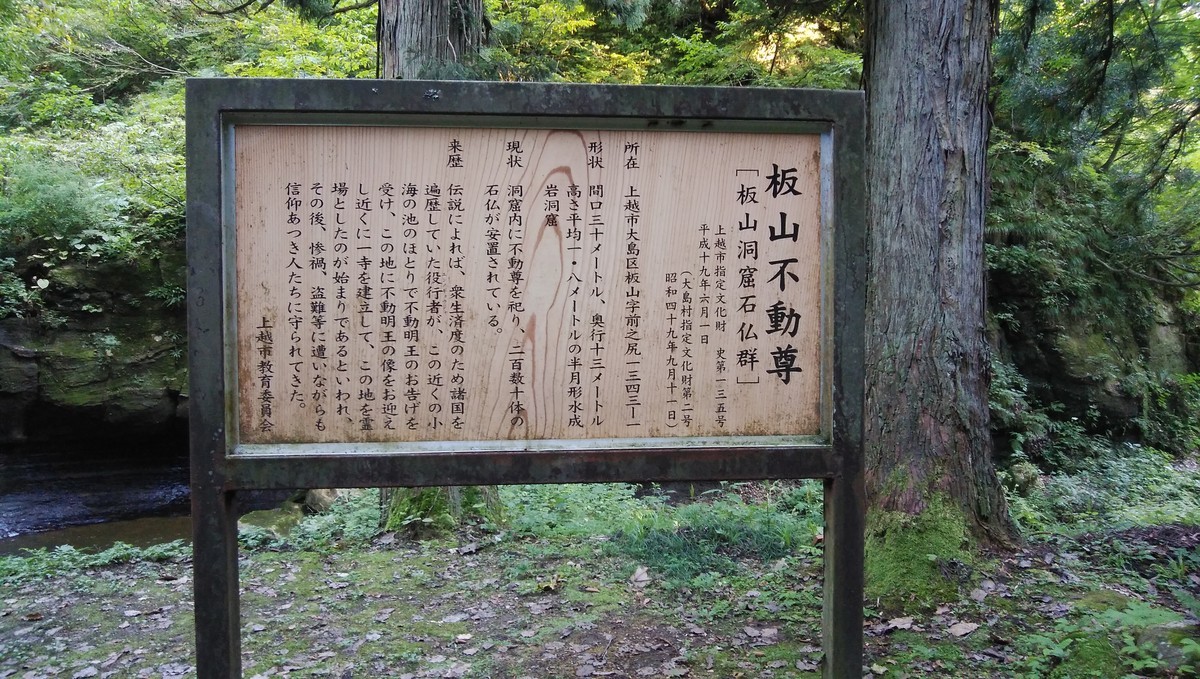 板山不動尊
［板山洞窟石仏群］
上越市指定文化財　史第一三五号
平成十九年六月一日
（大島村指定文化財第二号
昭和四十九年九月十一日）
所在　上越市大島区板山字前之尻一三四三―一
形状　間口三十メートル、奥行十三メートル
高さ平均一・八メートルの半月形水成
岩洞窟
現状　洞窟内に不動尊を祀り、二百数十体の
石仏が安置されている。
来歴　伝説によれば、衆生済度のため諸国を
遍歴していた役行者が、この近くの小
海の池のほとりで不動明王のお告げを
受け、この地に不動明王の像をお迎え
し近くに一寺を建立して、この地を霊
場としたのが始まりであるといわれ、
その後、惨禍、盗難等に遭いながらも
信仰あつき人たちに守られてきた。
上越市教育委員会